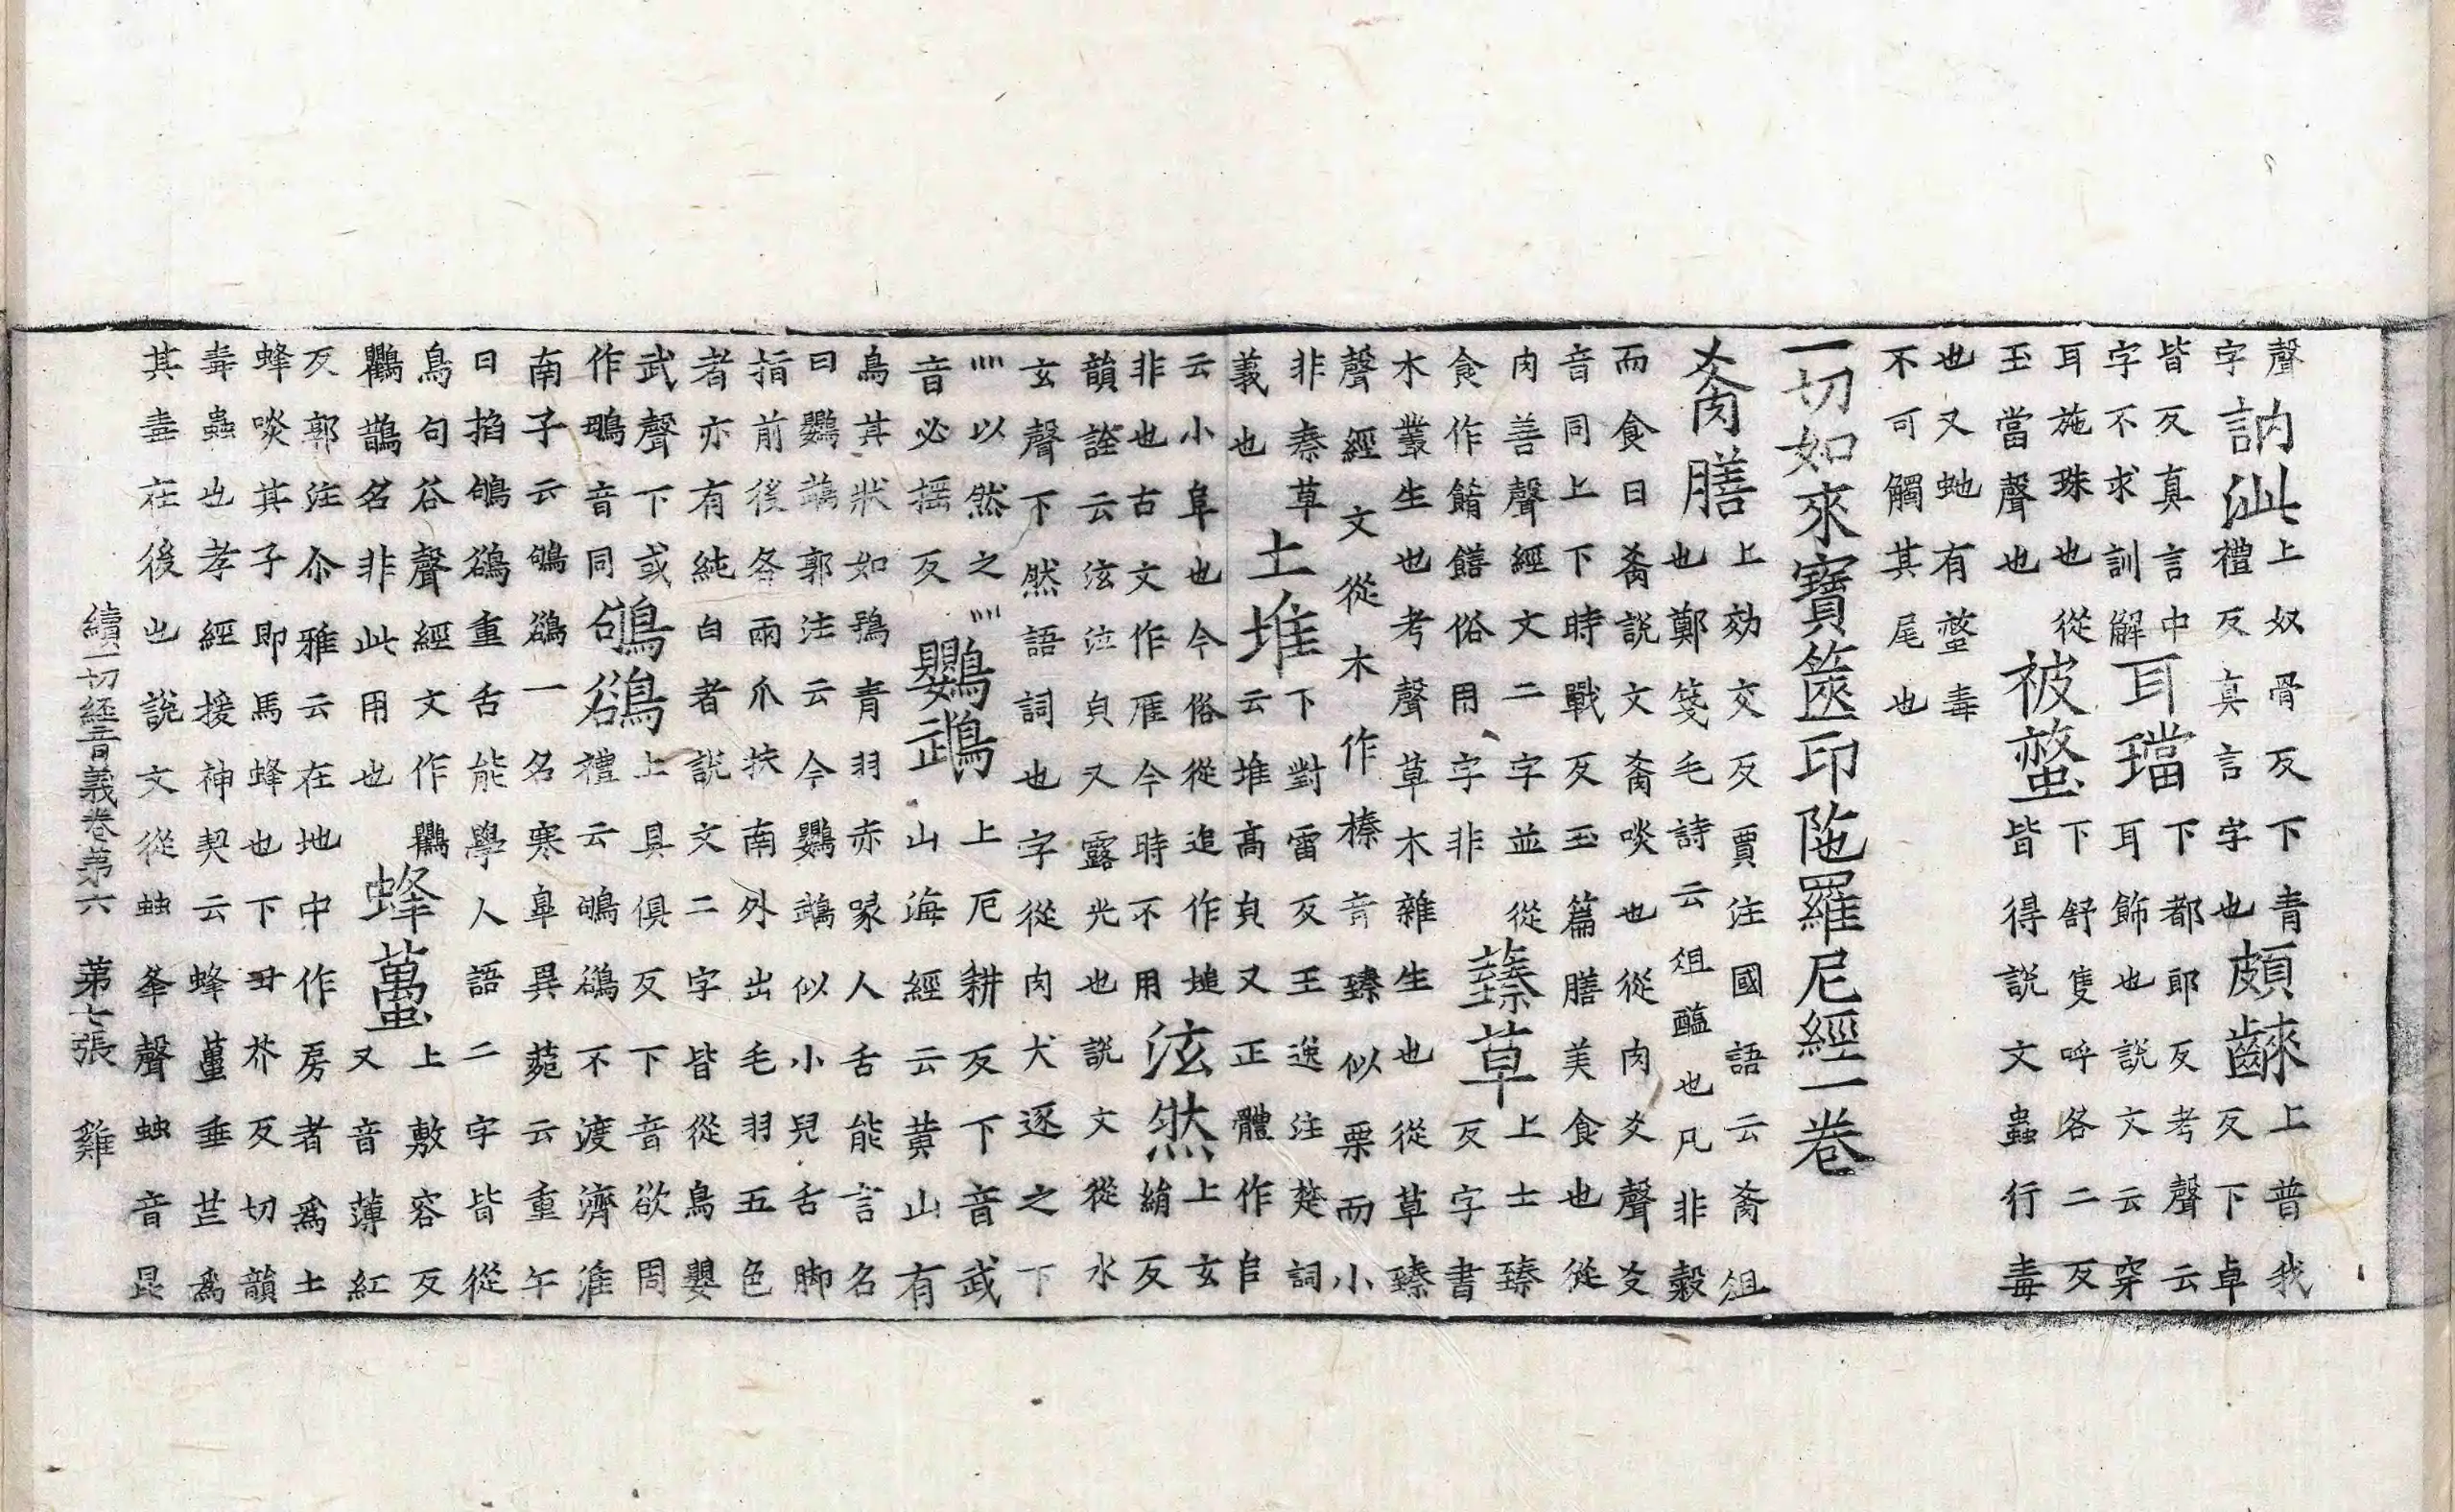 聲字訥泚上奴骨反下青禮反真言字也頗齼上普我反下卓
皆反真言中字不求訓解耳璫下都郎反考聲云耳飾也說文云穿
耳施珠也從玉當聲也被螫下舒隻呼各二反皆得說文蟲行毒
也又虵有螫毒不可觸其尾也
一切如來寶篋印陁羅尼經一卷
肴膳上効交反賈注國語云肴俎也鄭箋毛詩云俎醢也凡非穀
而食曰肴說文肴啖也從肉爻聲爻音同上下時戰反玉篇膳美食也從
肉善聲經文二字並從食作餚饍俗用字非蓁草上士臻反字書
木叢生也考聲草木雜生也從草臻聲經文從木作榛音臻似栗而小
非蓁草義也土堆下對雷反王逸注楚詞云堆高皃又正體作𠂤
云小阜也今俗從追作塠非也古文作𨾚今時不用泫然上玄絹反
韻詮云泫泣皃又露光也說文從水玄聲下然語詞也字從肉犬逐之下
灬以然之灬音必搖反鸚䳇上厄耕反下音武山海經云黃山有
鳥其狀如鴞青羽赤喙人舌能言名曰鸚䳇郭注云今鸚䳇似小兒舌脚
指前後各兩爪扶南外出毛羽五色者亦有純白者說文二字皆從鳥嬰
武聲下或作鵡音同鴝鵒上具俱反下音欲周禮云鴝鵒不渡濟淮
南子云鴝鵒一名寒皐異菀云重午日掐鴝鵒重舌能學人語二字皆從
鳥句谷聲經文作鸜鸜鵲名非此用也蜂蠆上敷容反又音薄紅
反郭注尒雅云在地中作房者為土蜂啖其子即馬蜂也下丑芥反切韻
毒蟲也孝經援神契云蜂蠆垂芒為其毒在後也說文從䖵夆聲䖵音昆
續一切經音義卷第六 第七張 雞